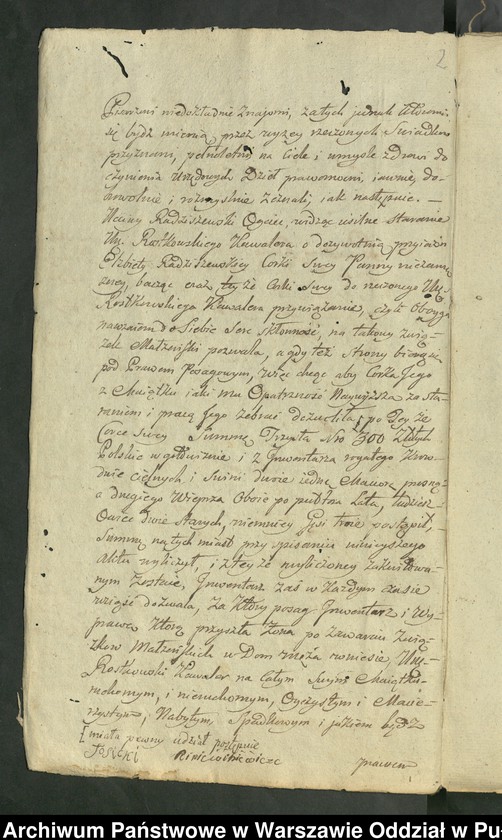 2
Pisarzowi niedokładnie Znajomi, za tych jednak którzemi
się bydź mienią przez wyzey rzeczonych Swiadków
przyznani, pełnoletni na Ciele i umyśle zdrowi do
czynienia Urzędowych Dzieł prawomocni, iawnie, do-
browolnie i rozmyslnie zeznali, iak następuie. —
Ucciwy Radziszewski Oyciec, widząc usilne Staranie
Ur. Rostkowskiego Kawalera o dozywotnią przyiazń
Elzbiety Radziszewskiey Corki Swey Panny niezamę-
zney, bacząc oraz, tey że Corki Swey do rzeczonego Ur.
Rostkowskiego Kawalera przywiązanie, czyli Oboyga
nawzaiem do Siebie Serc Skłonność, na takowy zwią-
zek Małżeński pozwala, a gdy też Strony biorą się
pod Prawem Posagowym, więc chcąc aby Corka Jego
z Maiątku iaki mu Opatrzność Naywyższa za sta-
raniem i pracą Jego zebrać dozwoliła, po Tey że
Corce Swey Summę Trzysta Nro 300 Złotych
Polskie w gotowiznie i z Inwentarza rogatego Krow
dwie cielnych i Swini dwoie iedną Maciorę prosną
a drugiego Wieprza Oboie po pułtora Lata, tudzież
Owiec dwie Starych, niemniey Gęsi troie postąpił,
Summę natych miast przy spisaniu ninieyszego
Aktu wyliczył, i z tey że wyliczoney zakwitowa-
nym zostaie, Inwentarz zaś w każdym czasie
wziąść dozwala, Za który posag Inwentarz i Wy-
prawę którą przyszła Żona po zawarciu Zwią-
zków Małżeńskich w Dom męża wniesie, Ur.
Rostkowski Kawaler na całym Swym Maiątku
ruchomym, i nieruchomym, Oyczystym i Macie-
rzystym, Nabytym, Spadkowym i iakiem bydź
[miała pewny udział postąpić
prawem
Archiwum Państwowe w Warszawie Oddział w Pu